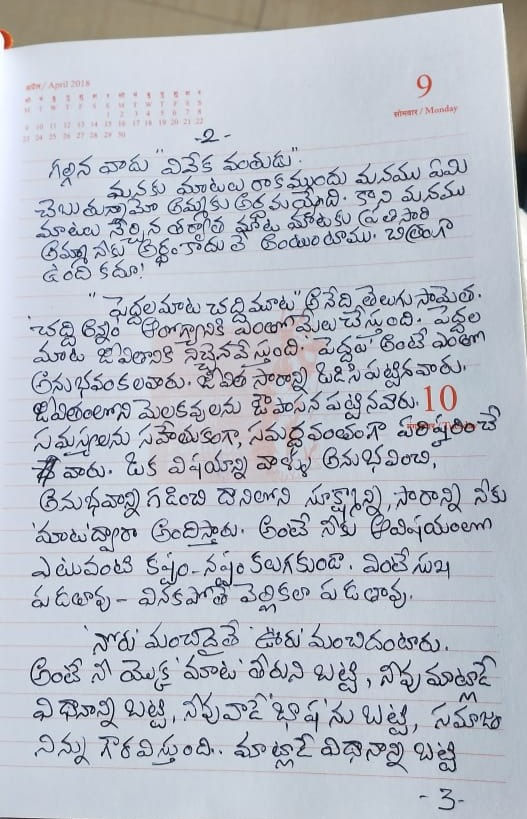 अप्रैल / April 2018
9
सोमवार / Monday
-2-
గల్గిన వాడు "వివేక వంతుడు".
మనకు మాటలు రాకముందు మనము ఏమి
చెబుతున్నామో అమ్మకు అర్థమయ్యేది. కాని మనము
మాటలు నేర్చిన తర్వాత మాట మాటకు ప్రతిసారి
అమ్మా నీకు అర్థంకాదు లే అంటుంటాము. చిత్రంగా
ఉంది కదూ!
"పెద్దలమాట చద్దిమూట" అనేది తెలుగు సామెత.
చద్ది అన్నం ఆరోగ్యానికి ఎంతో మేలు చేస్తుంది. పెద్దల
మాట జీవితానికి నిచ్చెనవేస్తుంది. 'పెద్దలు' అంటే ఎంతో
అనుభవంకలవారు. జీవిత సారాన్ని కుడిసి పట్టినవారు.
జీవితంలోని మెలకువలను ఔపోసన పట్టినవారు.
10
సమస్యలను సహేతుకంగా, సమర్థవంతంగా పరిష్కరించే
వారు. ఒక విషయాన్ని వాళ్ళు అనుభవించి,
అనుభవాన్ని గడించి దానిలోని సూక్ష్మాన్ని, సారాన్ని నీకు
'మాట'ద్వారా అందిస్తారు. అంటే నీకు ఆవిషయంలో
ఎటువంటి కష్టం-నష్టం కలుగకుండా. వింటే సుఖ
పడతావు - వినకపోతే వెర్రికలా పడతావు.
'నోరు' మంచిదైతే 'ఊరు' మంచిదంటారు.
అంటే నీ యొక్క 'మాట' తీరుని బట్టి, నీవు మాట్లాడే
విధానాన్ని బట్టి, నీవు వాడే 'భాష'ను బట్టి, సమాజం
నిన్ను గౌరవిస్తుంది. మాట్లాడే విధానాన్ని బట్టి
-3-